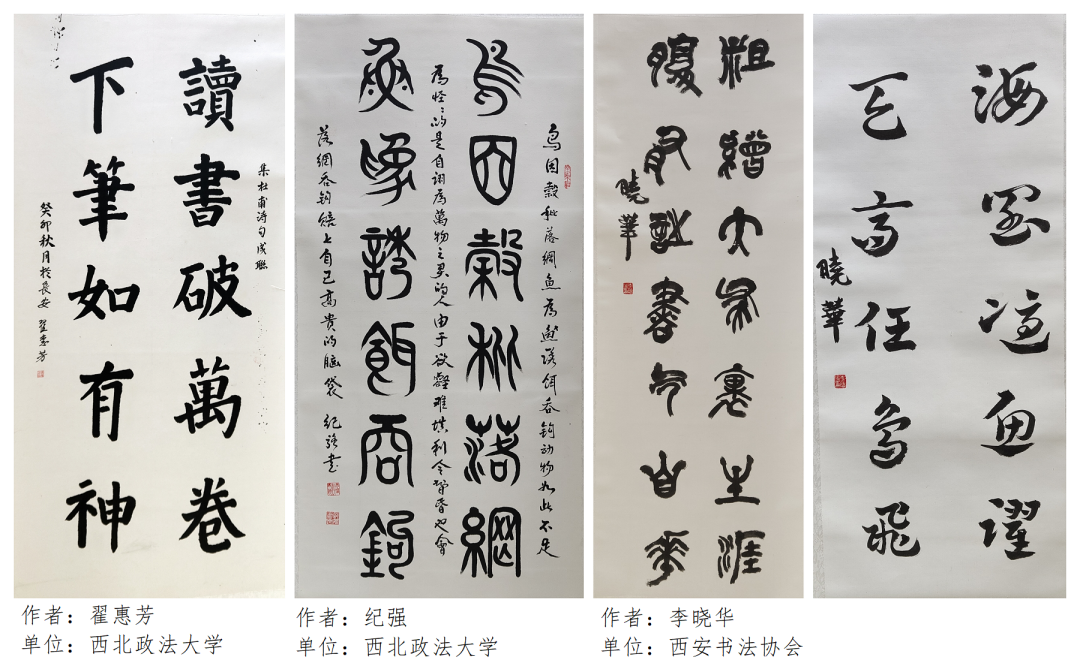 讀書破萬卷
集杜甫詩句成聯
下筆如有神
癸卯秋月於長安 翟惠芳
鸟因穀秕落網魚為誘饵吞钩动物如此不足
鳥因穀秕落網
為怪怪的是自诩為萬物之灵的人由于欲壑难填利令智昏也會
魚為誘餌吞鉤
落網吞钩赔上自己高贵的脑袋 纪强书
粗繒大布裹生涯
腹有詩書氣自華
曉華
海阔憑魚躍
天高任鳥飛
曉華
作者：翟惠芳
单位：西北政法大学
作者：纪强
单位：西北政法大学
作者：李晓华
单位：西安书法协会